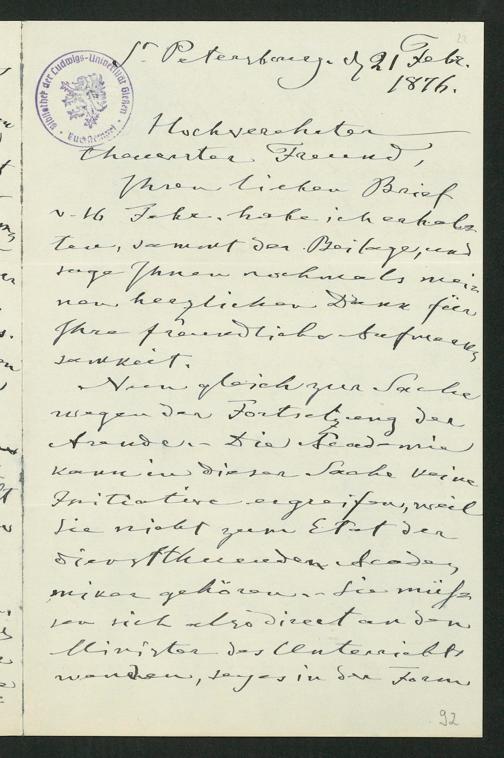 St. Petersbourg. d. 21 Febr.
1876.
Bibliothek der Ludwigs-Universität Gießen
Hochverehrter
theuerster Freund,
Ihren lieben Brief
v. 16 Febr. habe ich erhal-
ten, sammt der Beilage, und
sage Ihnen nochmals mei-
nen herzlichen Dank für
Ihre freundliche Aufmerk-
samkeit.
Nun gleich zur Sache
wegen der Fortsetzung der
Arende. - Die Academie
kann in dieser Sache keine
Initiative ergreifen, weil
Sie nicht zum Etat der
dienstthuenden Acade-
miker gehören. - Sie müs-
sen sich also direct an den
Minister des Unterrichts
wenden, sey es in der Form
92